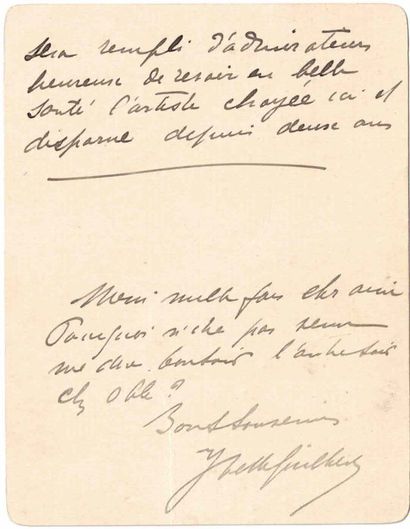 sera rempli d'admirateurs
heureux de revoir en belle
santé l'artiste choyée ici et
disparue depuis deux ans
Merci mille fois cher ami
Pourquoi n'êtes pas venu
me dire bonsoir l'autre soir
chez ?
Bons Souvenirs
Yvette Guilbert